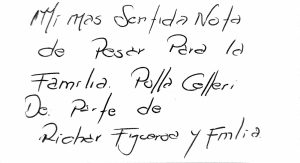 Mi mas Sentida Nota
de Pesar Para la
Familia. Polla Celleri.
De. Parte de
Richar Figueroa y Fmlia